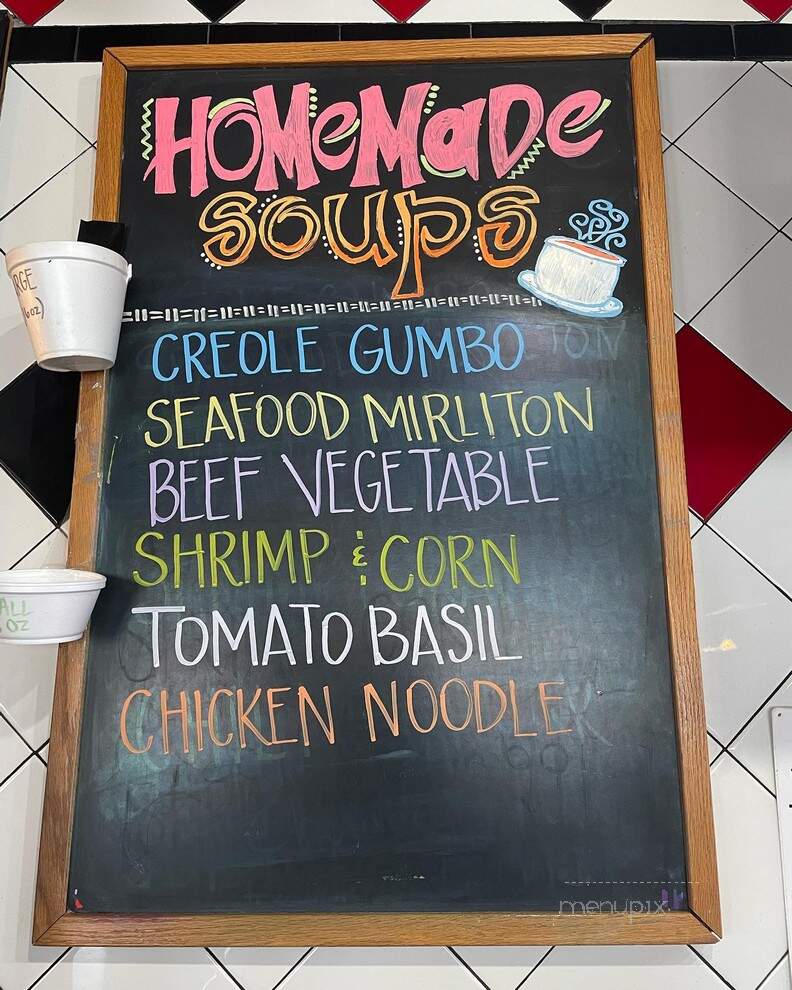 HOMeMaDe
SOUPS
CREOLE GUMBO
SEAFOOD MIRLITON
BEEF VEGETABLE
SHRIMP & CORN
TOMATO BASIL
CHICKEN NOODLE
RGE
OZ)
ALL
OZ
menupix